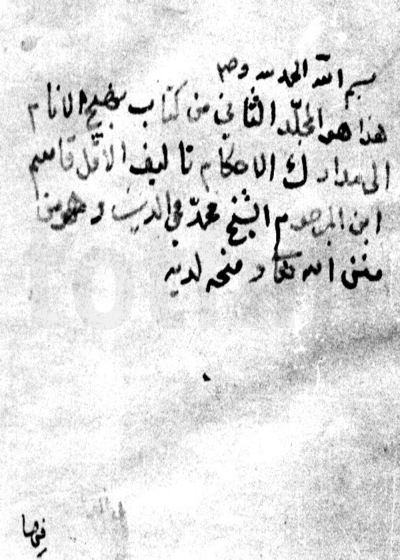 بسم الله الحمد لله وحده
هذا هو المجلد الثاني من كتاب نهج الانام
الى مدارك الاحكام تاليف الاقل قاسم
ابن المرحوم الشيخ محمد محي الدين وهو من
منن الله تعالى و منحه لديه
فيها